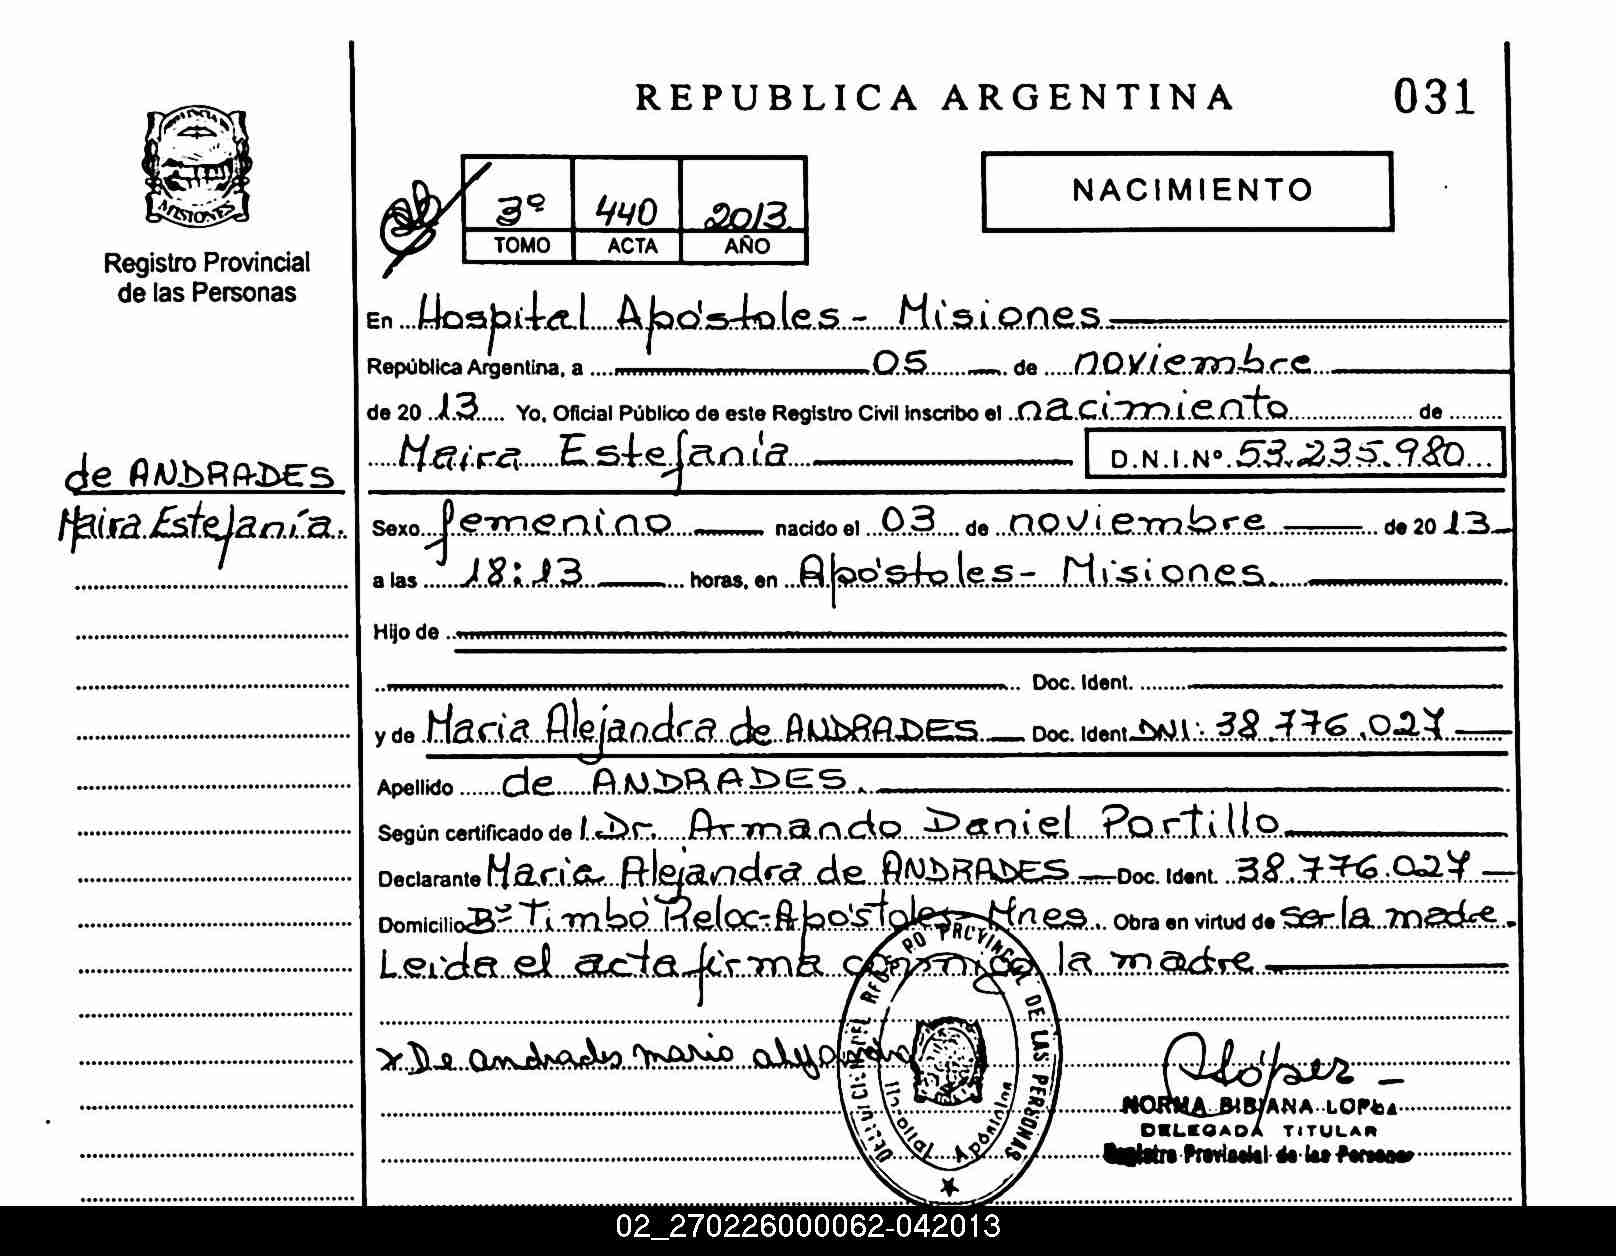 REPUBLICA ARGENTINA
031
MISIONES
Registro Provincial
de las Personas
3º 440 2013
TOMO ACTA AÑO
NACIMIENTO
En Hospital Apóstoles - Misiones
República Argentina, a 05 de noviembre
de 20 13 Yo, Oficial Público de este Registro Civil inscribo el nacimiento de
Maira Estefanía D.N.I.Nº 53.235.980
de ANDRADES
Maira Estefanía.
Sexo femenino nacido el 03 de noviembre de 20 13
a las 18:13 horas, en Apóstoles - Misiones
Hijo de
Doc. Ident.
y de Maria Alejandra de ANDRADES Doc. Ident. DNI: 38.776.027
Apellido de ANDRADES.
Según certificado de l. Dr. Armando Daniel Portillo
Declarante Maria Alejandra de ANDRADES Doc. Ident. 38.776.027
Domicilio Bº Timbó Reloc - Apóstoles - Mnes. Obra en virtud de ser la madre.
Leida el acta firma conmigo la madre
x De andrades maria alejandra
DEL REGISTRO PROVINCIAL DE LAS PERSONAS
Hospital Apóstoles
López
NORMA BIBIANA LOPEZ
DELEGADA TITULAR
Registro Provincial de las Personas
02_270226000062-042013